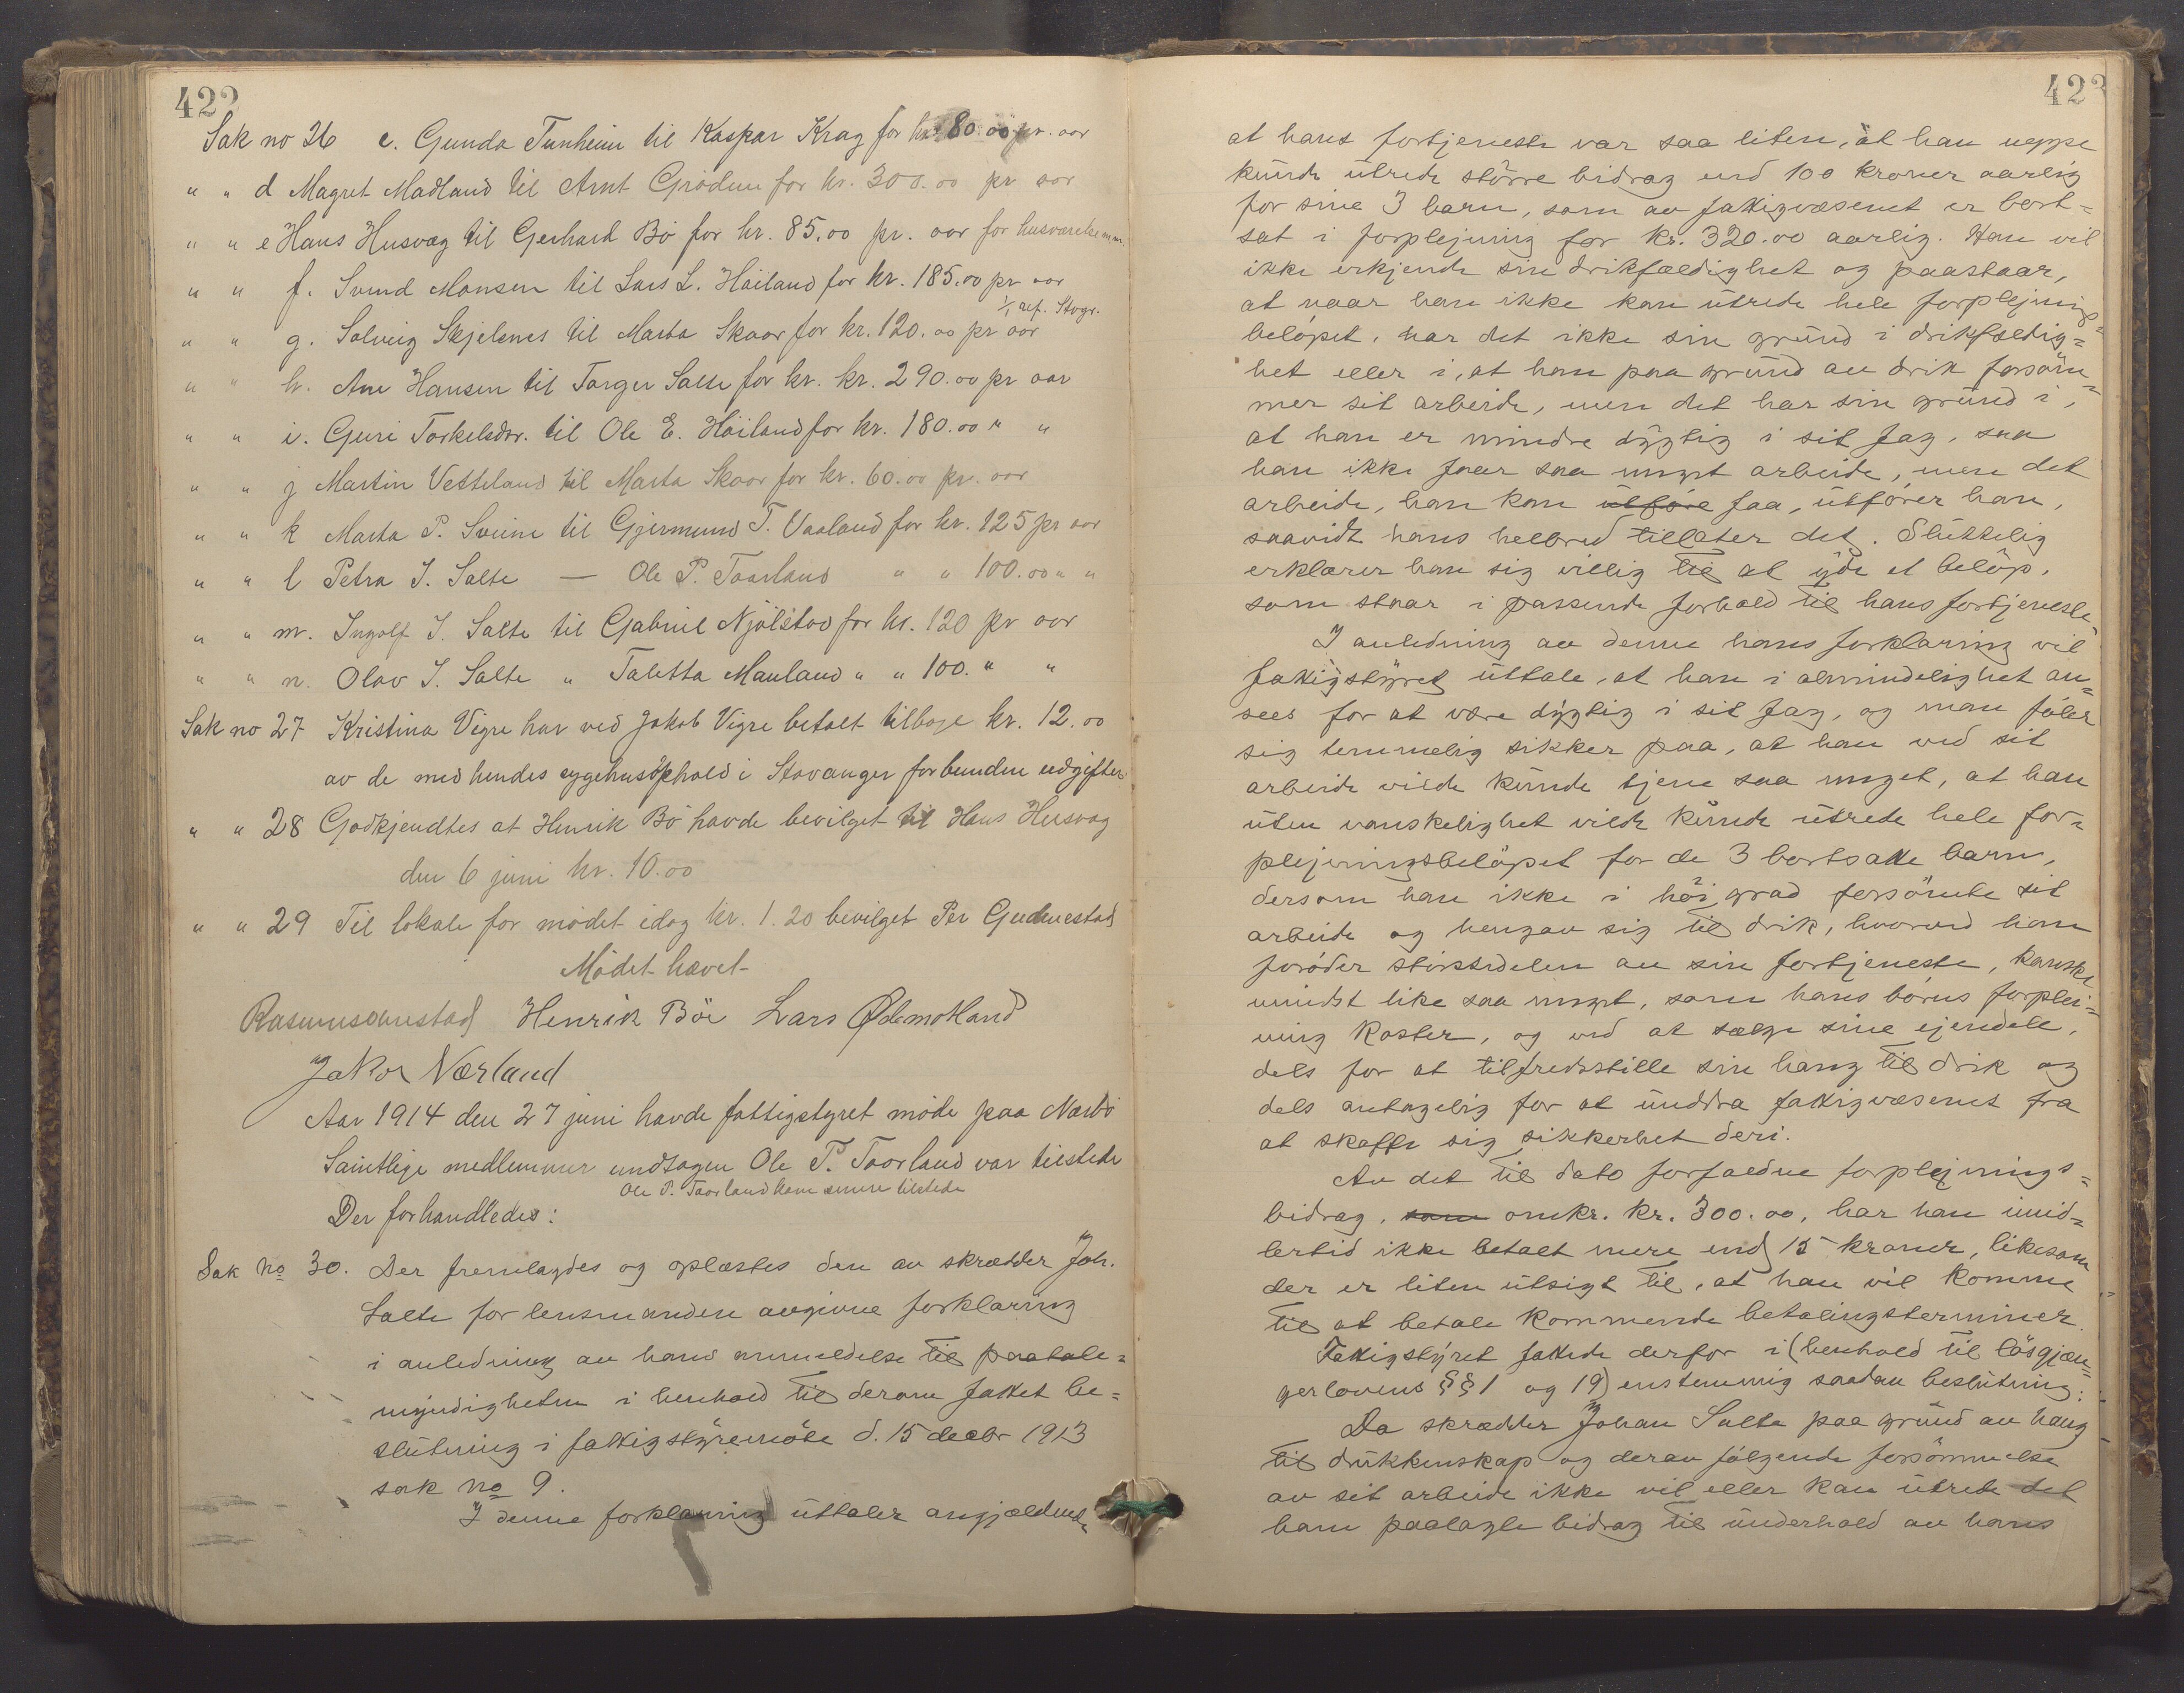 422
Sak no 26 c. Gunda Tunheim til Kaspar Krag for kr. 80.00 pr. aar
" " d Magret Madland til Arnt Grödem for kr. 300.00 pr aar
" " e Hans Husvæg til Gerhard Bö for kr. 85.00 pr. aar for husværelse m.m.
" " f. Svend Monsen til Lars L. Höiland for kr. 185.00 pr aar
1/1 ref. Stvgr.
" " g. Solveig Skjelenes til Marta Skaar for kr. 120.00 pr aar
" " h. Ane Hansen til Torger Salte for kr. kr. 290.00 pr aar
" " i. Guri Torkelsdtr. til Ole E. Höiland for kr. 180.00 " "
" " j Martin Vetteland til Marta Skaar for kr. 60.00 pr. aar
" " k Marta P. Sviim til Gjermund T. Vaaland for kr. 125 pr aar
" " l Petra J. Salte — Ole P. Taarland " " 100.00 " "
" " m. Ingolf J. Salte til Gabriel Njölstad for kr. 120 pr aar
" " n. Olav J. Salte " Taletta Mauland " " 100. " "
Sak no 27 Kristina Vigre har ved Jakob Vigre betalt tilbage kr. 12.00
av de med hendes sygehusöphold i Stavanger forbundne udgifter
" " 28 Godkjendtes at Henrik Bö havde bevilget til Hans Husvæg
den 6 juni kr. 10.00
" " 29 Til lokale for mödet idag kr. 1.20 bevilget Per Gudmestad
Mödet hævet
Rasmus Anestad Henrik Böe Lars Ødemotland
Jakob Nærland
Aar 1914 den 27 juni havde fattigstyret möde paa Nærbö
Samtlige medlemmer undtagen Ole P. Taarland var tilstede
Ole P. Taarland kom senere tilstede
Der forhandledes:
Sak No 30. Der fremlagdes og oplæstes den av skrædder Joh.
Salte for lensmanden avgivne forklaring
i anledning av hans anmeldelse til paatale=
myndigheten i henhold til derom fattet be=
slutning i fattigstyremöte d. 15 decbr 1913
sak No 9.
I denne forklaring uttaler angjældende
423
at hans fortjeneste var saa liten, at han neppe
kunde utrede större bidrag end 100 kroner aarlig
for sine 3 barn, som av fattigvæsenet er bort=
sat i forplejning for kr. 320.00 aarlig. Han vil
ikke erkjende sin drikfældighet og paastaar,
at naar han ikke kan utrede hele forplejnings=
belöpet, har det ikke sin grund i drikfældig=
het eller i, at han paa grund av drik forsöm=
mer sit arbeide, men det har sin grund i,
at han er mindre dygtig i sit fag, saa
han ikke faar saa meget arbeide, men det
arbeide, han kan utföre faa, utförer han,
saavidt hans helbred tillater det. Sluttelig
erklærer han sig villig til at yde et belöp,
som staar i passende forhold til hans fortjeneste.
I anledning av denne hans forklaring vil
fattigstyret uttale, at han i almindelighet an=
sees for at være dygtig i sit fag, og man föler
sig temmelig sikker paa, at han ved sit
arbeide vilde kunde tjene saa meget, at han
uten vanskelighet vilde kunde utrede hele for=
plejningsbelöpet for de 3 bortsatte barn,
dersom han ikke i höi grad forsömte sit
arbeide og hengav sig til drik, hvorved han
foröder störstedelen av sin fortjeneste, kanske
mindst like saa meget, som hans börns forplei=
ning koster, og ved at sælge sine ejendele,
dels for at tilfredsstille sin hang til drik og
dels antagelig for at unddra fattigvæsenet fra
at skaffe sig sikkerhet deri.
Av det til dato forfaldne forplejnings=
bidrag, som omkr. kr. 300.00, har han imid=
lertid ikke betalt mere end 15 kroner, likesom
der er liten utsigt til, at han vil komme
til at betale kommende betalingsterminer.
Fattigstyret fattede derfor i (henhold til lösgjæn=
gerlovens §§ 1 og 19) enstemmig saadan beslutning:
Da skrædder Johan Salte paa grund av hang
til drukkenskap og derav fölgende forsömmelse
av sit arbeide ikke vil eller kan utrede det
ham paalagte bidrag til underhold av hans